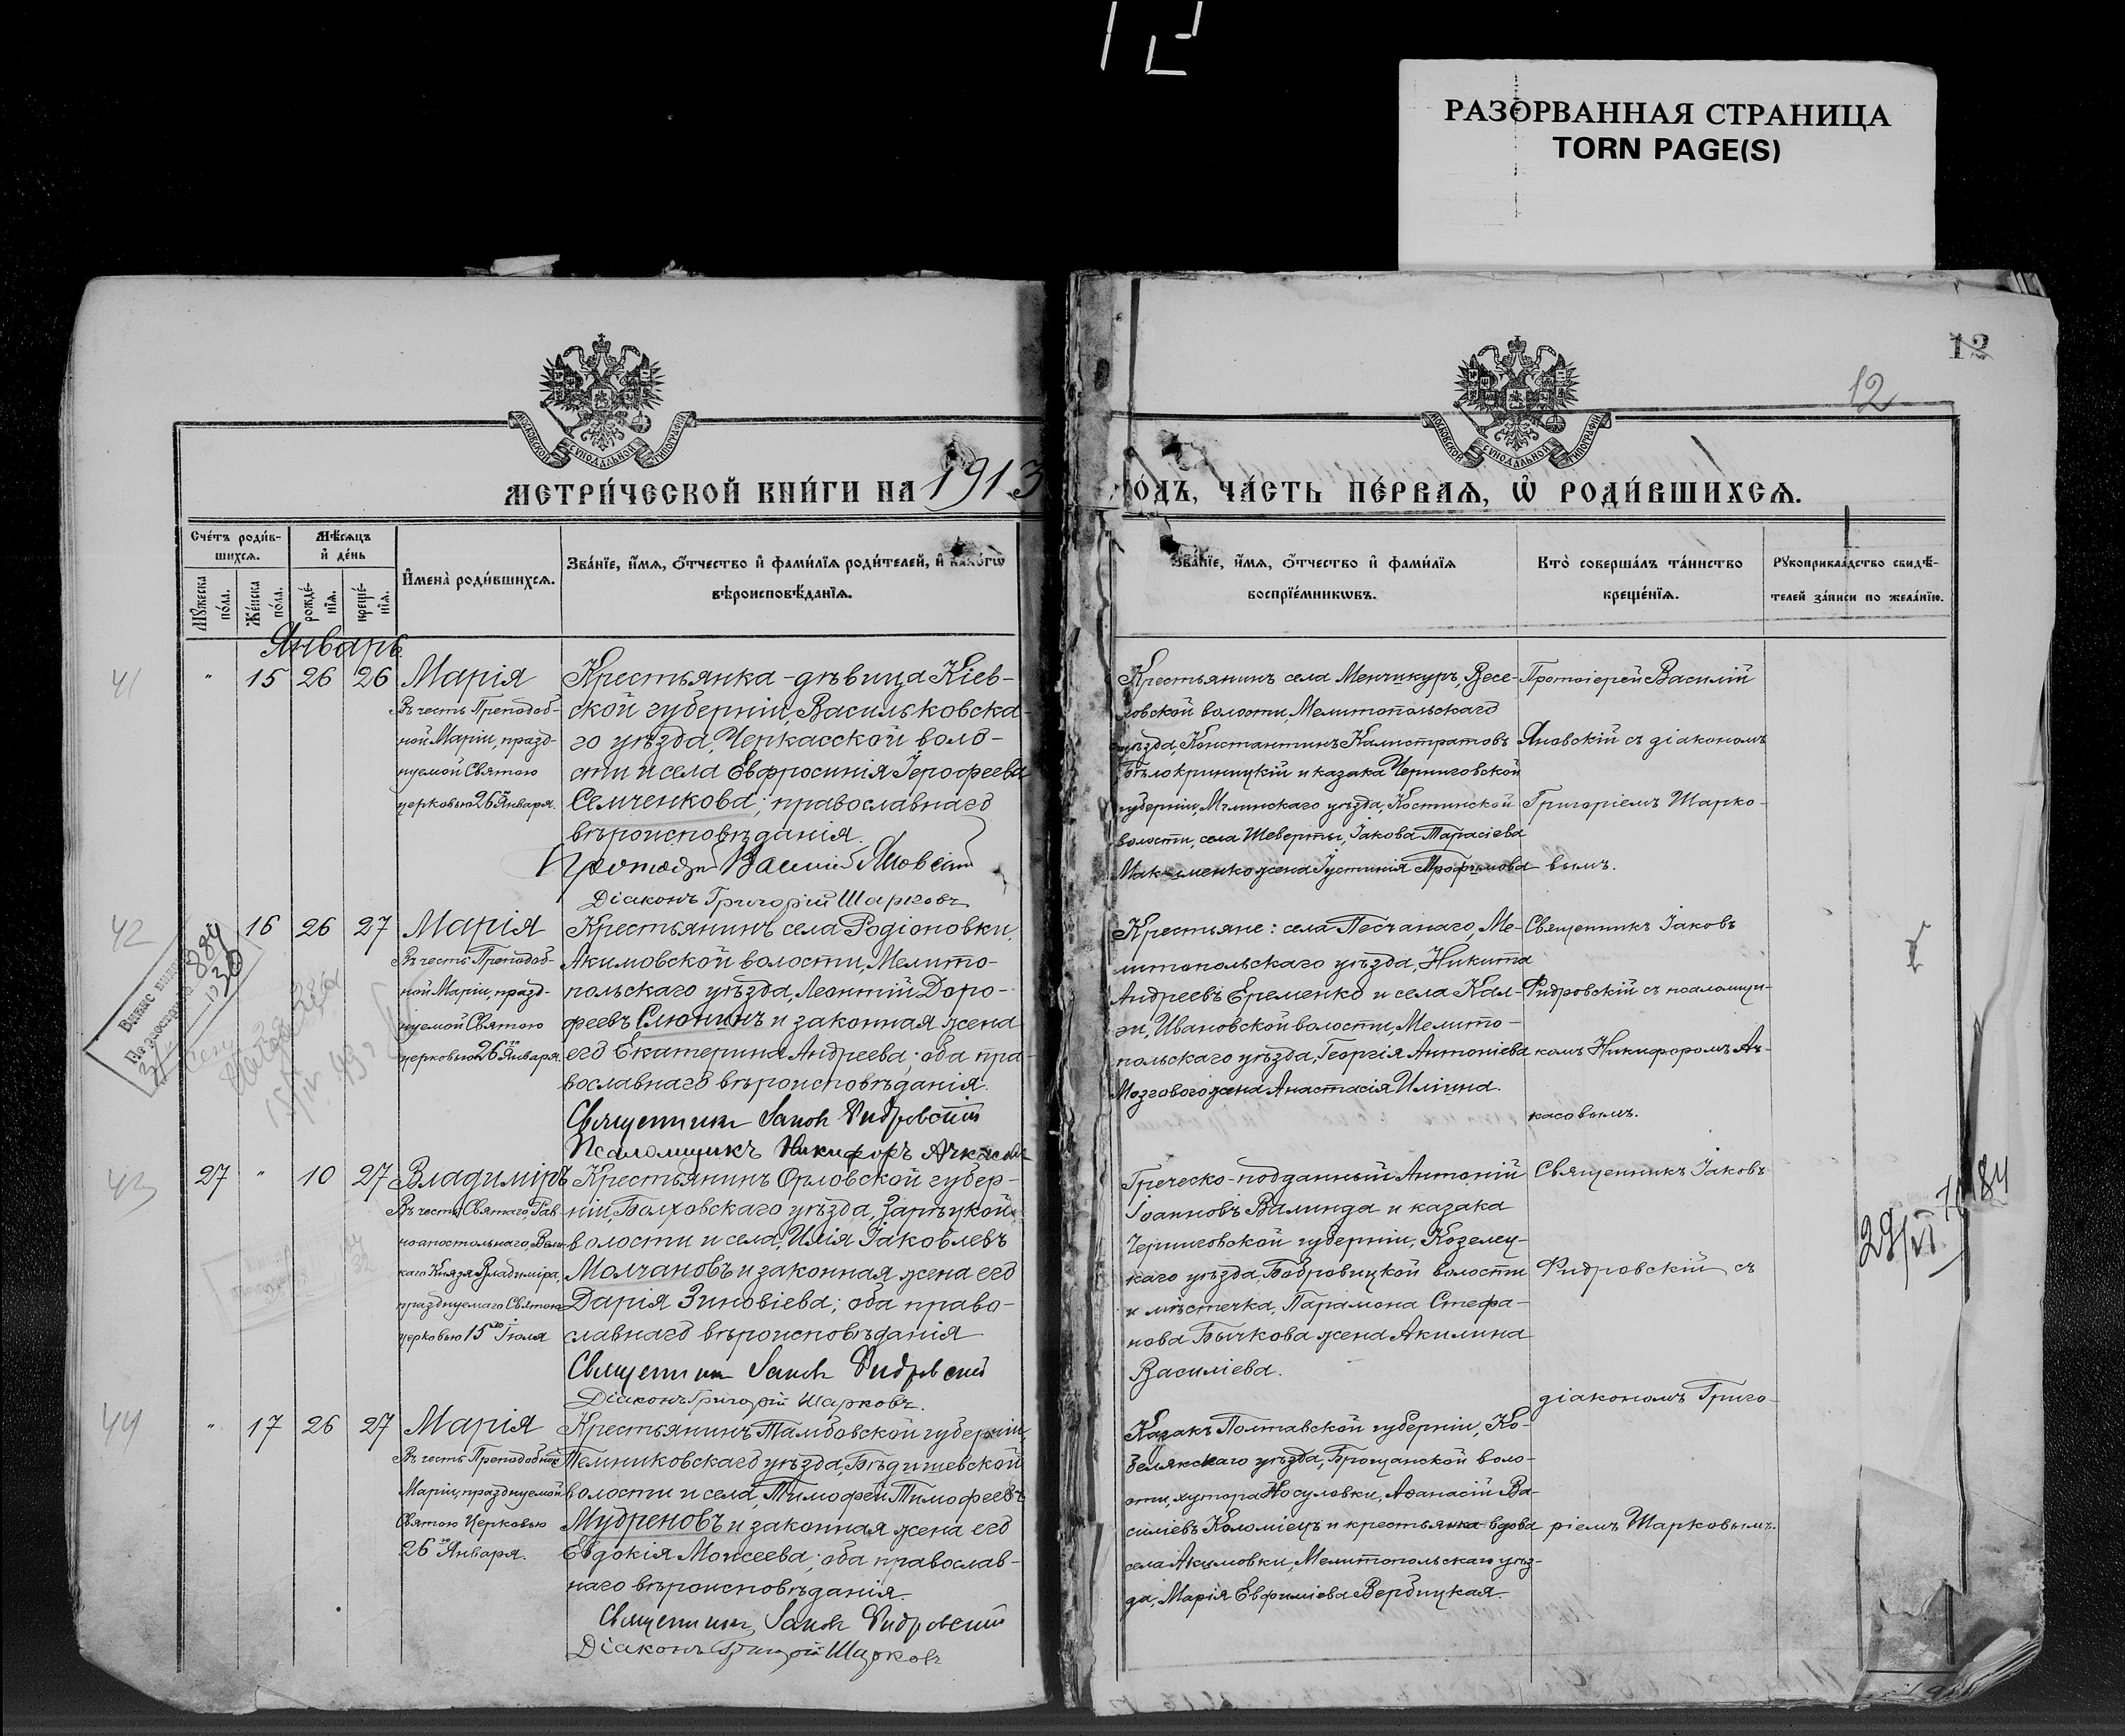 12
РАЗОРВАННАЯ СТРАНИЦА
TORN PAGE(S)
12
12
МОСКОВСКОЙ СѴНОДАЛЬНОЙ ТИПОГРАФІИ
МОСКОВСКОЙ СѴНОДАЛЬНОЙ ТИПОГРАФІИ
МЕТРИ́ЧЕСКОЙ КНИ́ГИ НА 1913
ОДЪ, ЧА́СТЬ ПЕ́РВАЯ, Ѡ РОДИ́ВШИХСЯ.
Сче́тъ роди́в-
шихся.
Мѣ́сяцъ
и҆ де́нь
Мꙋ́жеска по́ла.
Же́нска по́ла.
рожде́-нїя.
креще́-нїя.
И҆мена̀ роди́вшихся.
Зва́нїе, и҆́мя, ѻ҆́тчество и҆ фами́лїя роди́телей, и҆ како́гѡ
вѣроисповѣ́данїя.
Зва́нїе, и҆́мя, ѻ҆́тчество и҆ фами́лїя
воспрїе́мникѡвъ.
Кто̀ соверша́лъ та́инство
креще́нїя.
Рꙋкоприкла́дство свидѣ́-
телей за́писи по жела́нїю.
Январь
41
" 15 26 26
Марія
Въ честь Преподоб-
ной Маріи, празд-
нуемой Святою
церковью 26го Января.
Крестьянка-дѣвица Кіев-
ской губерніи, Васильковска-
го уѣзда, Черкасской воло-
сти и села Евфросинія Іерофеева
Семченкова; православнаго
вѣроисповѣданія.
Василій Яновскій
Діаконъ Григорій Шарковъ
Крестьянинъ села Менчикуръ, Весе-
ловской волости, Мелитопольскаго
уѣзда, Константинъ Калистратовъ
Бѣлокриницкій и казака Черниговской
губерніи, Мглинскаго уѣзда, Костинской
волости, села Шеверты, Іакова Тарасіева
Максименко жена Іустинія Трофимова
Протоіерей Василій
Яновскій съ діакономъ
Григоріемъ Шарко-
вымъ.
42
16 26 27
884
Марія
Въ честь Преподоб-
ной Маріи, празд-
нуемой Святою
церковью 26го Января.
Крестьянинъ села Родіоновки,
Акимовской волости, Мелито-
польскаго уѣзда, Леонтій Доро-
феевъ Слюнинъ и законная жена
его Екатерина Андреева; оба пра-
вославнаго вѣроисповѣданія.
Священникъ Іаковъ Фидровскій
Псаломщикъ Никифоръ Ачкасовъ
Крестьяне: села Песчанаго, Ме-
литопольскаго уѣзда, Никита
Андреевъ Еременко и села Кал-
ги, Ивановской волости, Мелито-
польскаго уѣзда, Георгія Антоніева
Мозгового жена Анастасія Иліина.
Священникъ Іаковъ
Фидровскій съ псаломщи-
комъ Никифоромъ Ач-
касовымъ.
43
27 " 10 27
Владиміръ
Въ честь Святаго, Рав-
ноапостольнаго, Вели-
каго Князя Владиміра,
празднуемаго Святою
церковью 15го Іюля
Крестьянинъ Орловской губер-
ніи, Болховскаго уѣзда, Зарѣцкой
волости и села, Илія Іаковлевъ
Молчановъ и законная жена его
Дарія Зиновіева; оба право-
славнаго вѣроисповѣданія
Священникъ Іаковъ Фидровскій
Діаконъ Григорій Шарковъ.
Греческо-подданный Антоній
Іоанновъ Валинда и казака
Черниговской губерніи, Козелец-
каго уѣзда, Бобровицкой волости
и мѣстечка, Парамона Стефа-
нова Бычкова жена Акилина
Василіева.
Священникъ Іаковъ
Фидровскій съ
діакономъ Григо-
44
" 17 26 27
Марія
Въ честь Преподобной
Маріи, празднуемой
Святою Церковью
26го Января.
Крестьянинъ Тамбовской губерніи,
Темниковскаго уѣзда, Бѣдишевской
волости и села, Тимофей Тимофеевъ
Мудреновъ и законная жена его
Евдокія Моисеева; оба православ-
наго вѣроисповѣданія.
Священникъ Іаковъ Фидровскій
Діаконъ Григорій Шарковъ
Казакъ Полтавской губерніи, Ко-
белякскаго уѣзда, Брощанской воло-
сти, хутора Носуловки, Аѳанасій Ва-
силіевъ Коломіецъ и крестьянка вдова
села Акимовки, Мелитопольскаго уѣз-
да, Марія Евфиміева Вербицкая.
ріемъ Шарковымъ.